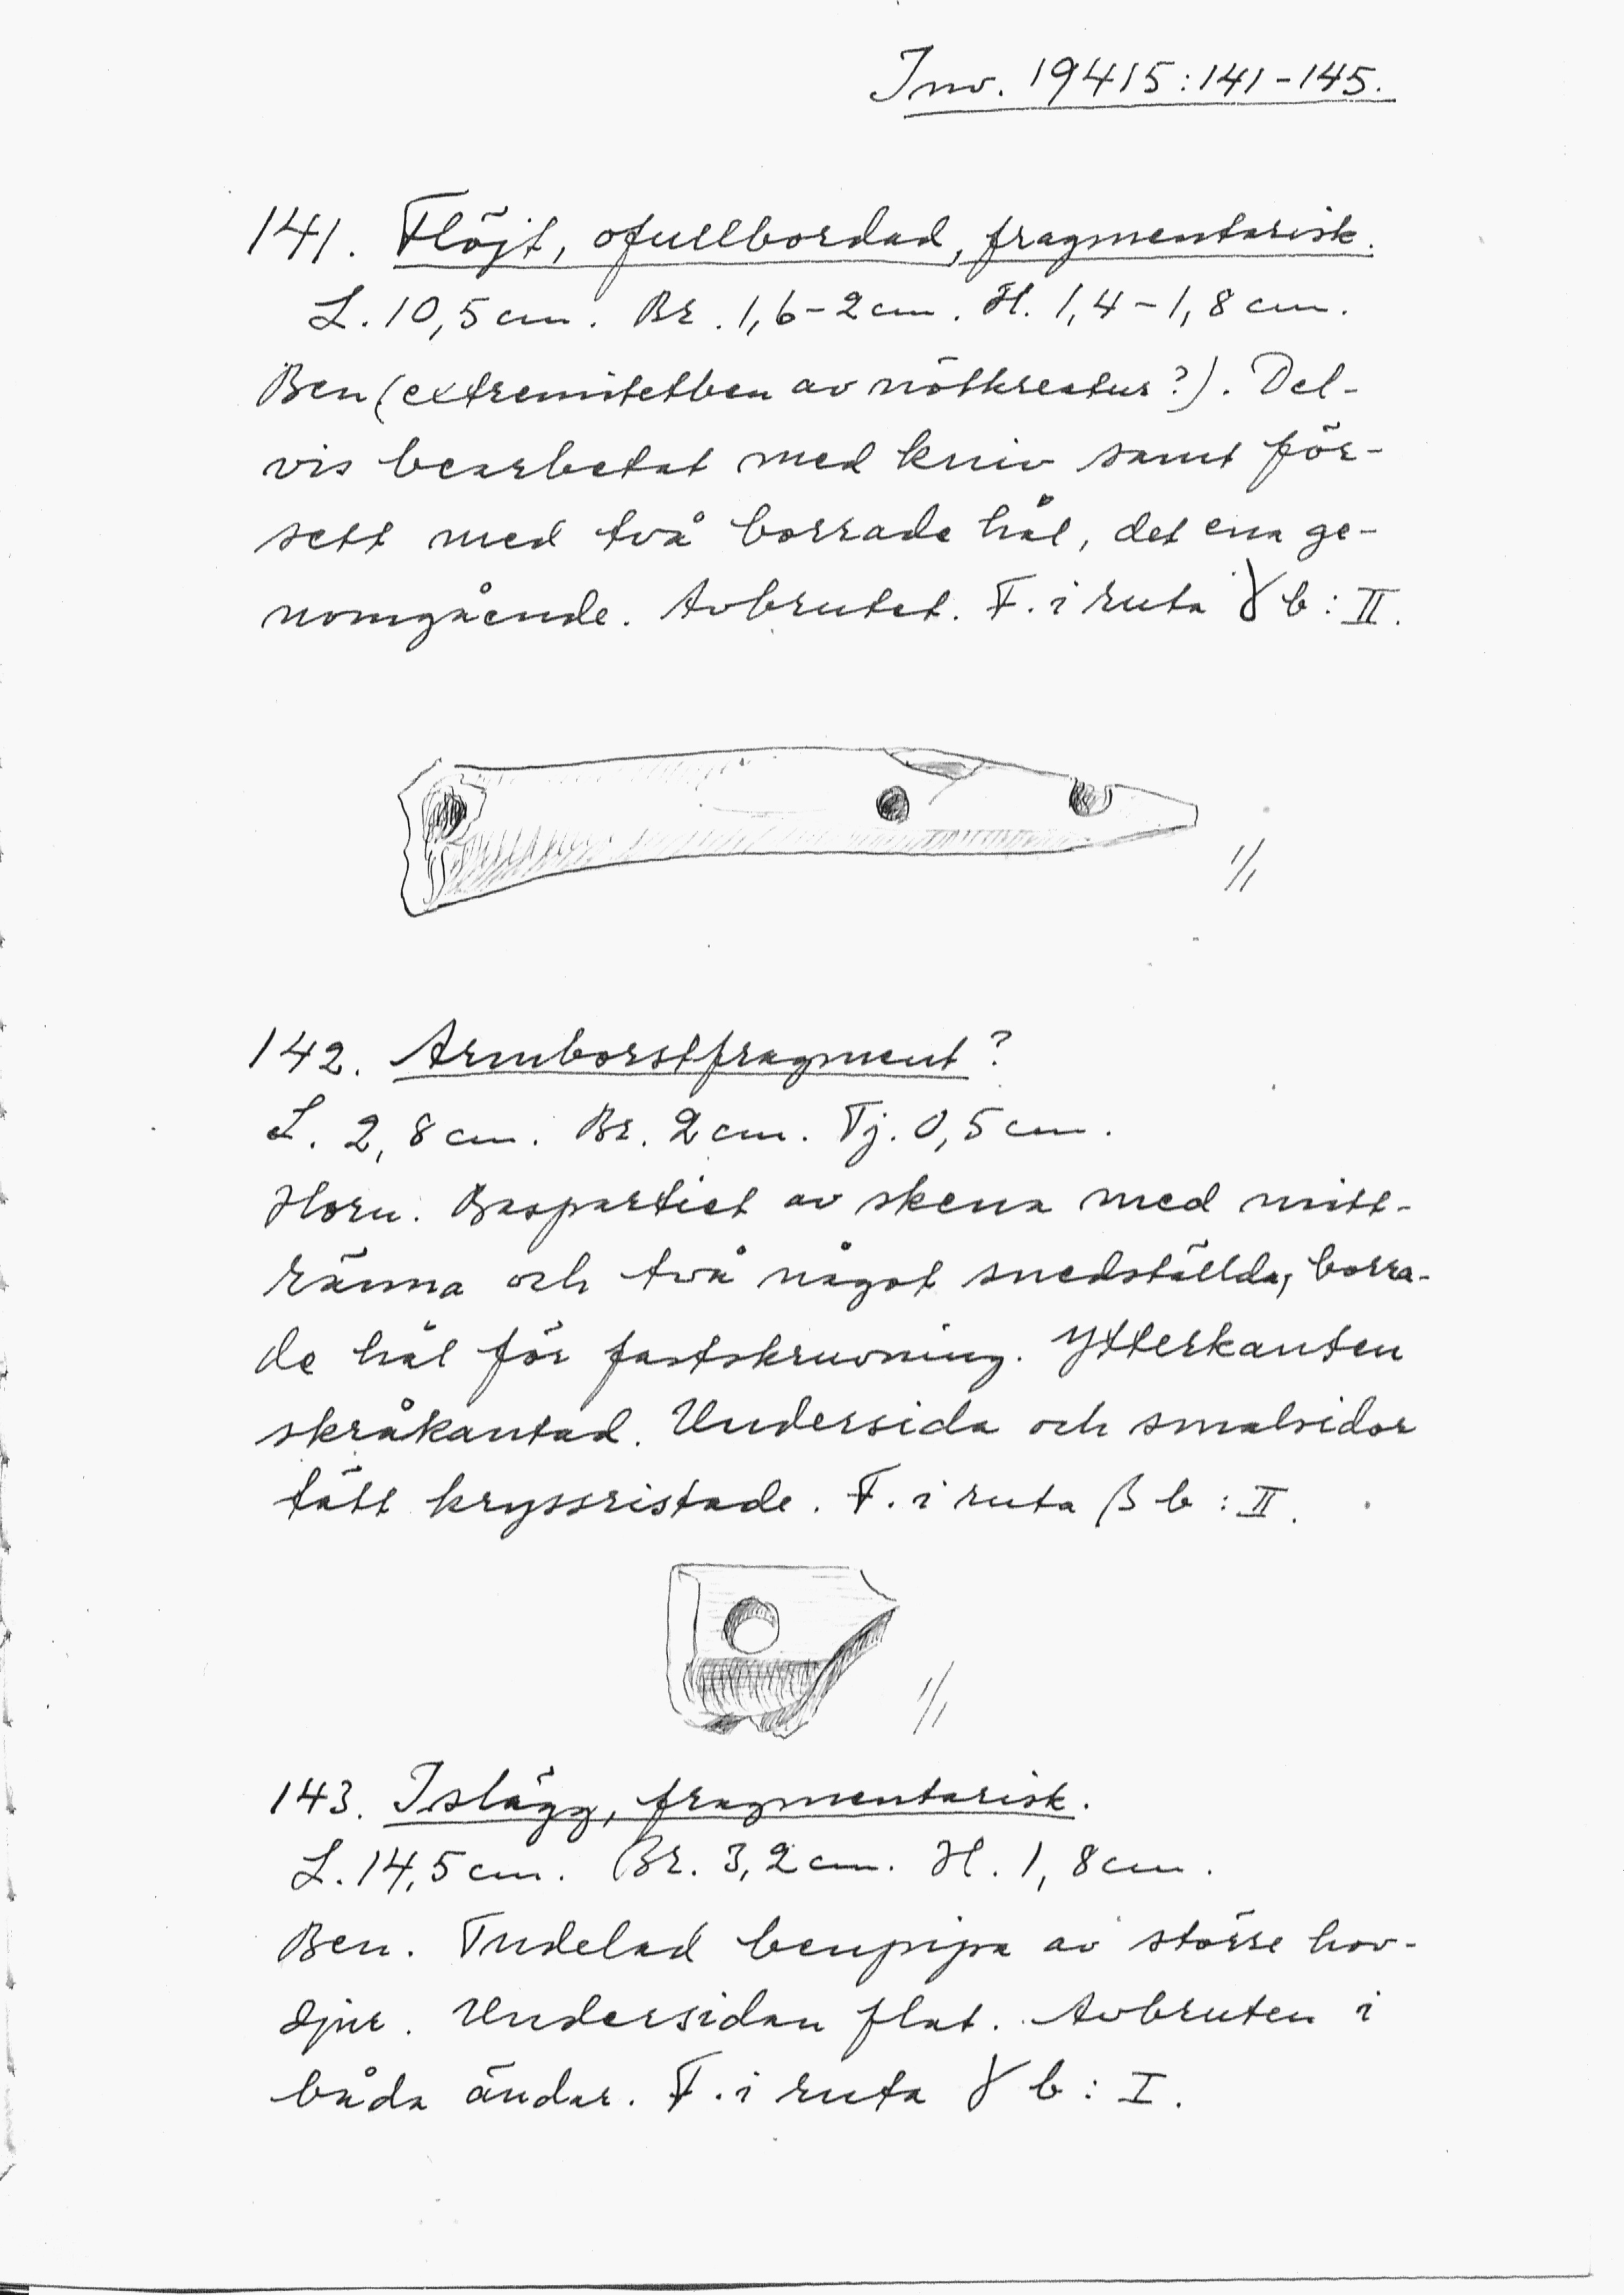 Inv. 19415:141-145.
141. Flöjt, ofullbordad, fragmentarisk.
L. 10,5 cm. Br. 1,6-2 cm. H. 1,4-1,8 cm.
Ben (extremitetben av nötkreatur?). Del-
vis bearbetat med kniv samt för-
sett med två borrade hål, det ena ge-
nomgående. Avbrutet. F. i ruta γ b : II.
1/1
142. Armborstfragment?
L. 2,8 cm. Br. 2 cm. Tj. 0,5 cm.
Horn. Baspartiet av skena med mitt-
ränna och två något snedställda, borra-
de hål för fastskruvning. Ytterkanten
skråkantad. Undersida och smalsidor
tätt kryssristade. F. i ruta β b : II.
1/1
143. Islägg, fragmentarisk.
L. 14,5 cm. Br. 3,2 cm. H. 1,8 cm.
Ben. Tudelad benpipa av större hov-
djur. Undersidan flat. Avbruten i
båda ändar. F. i ruta γ b : I.